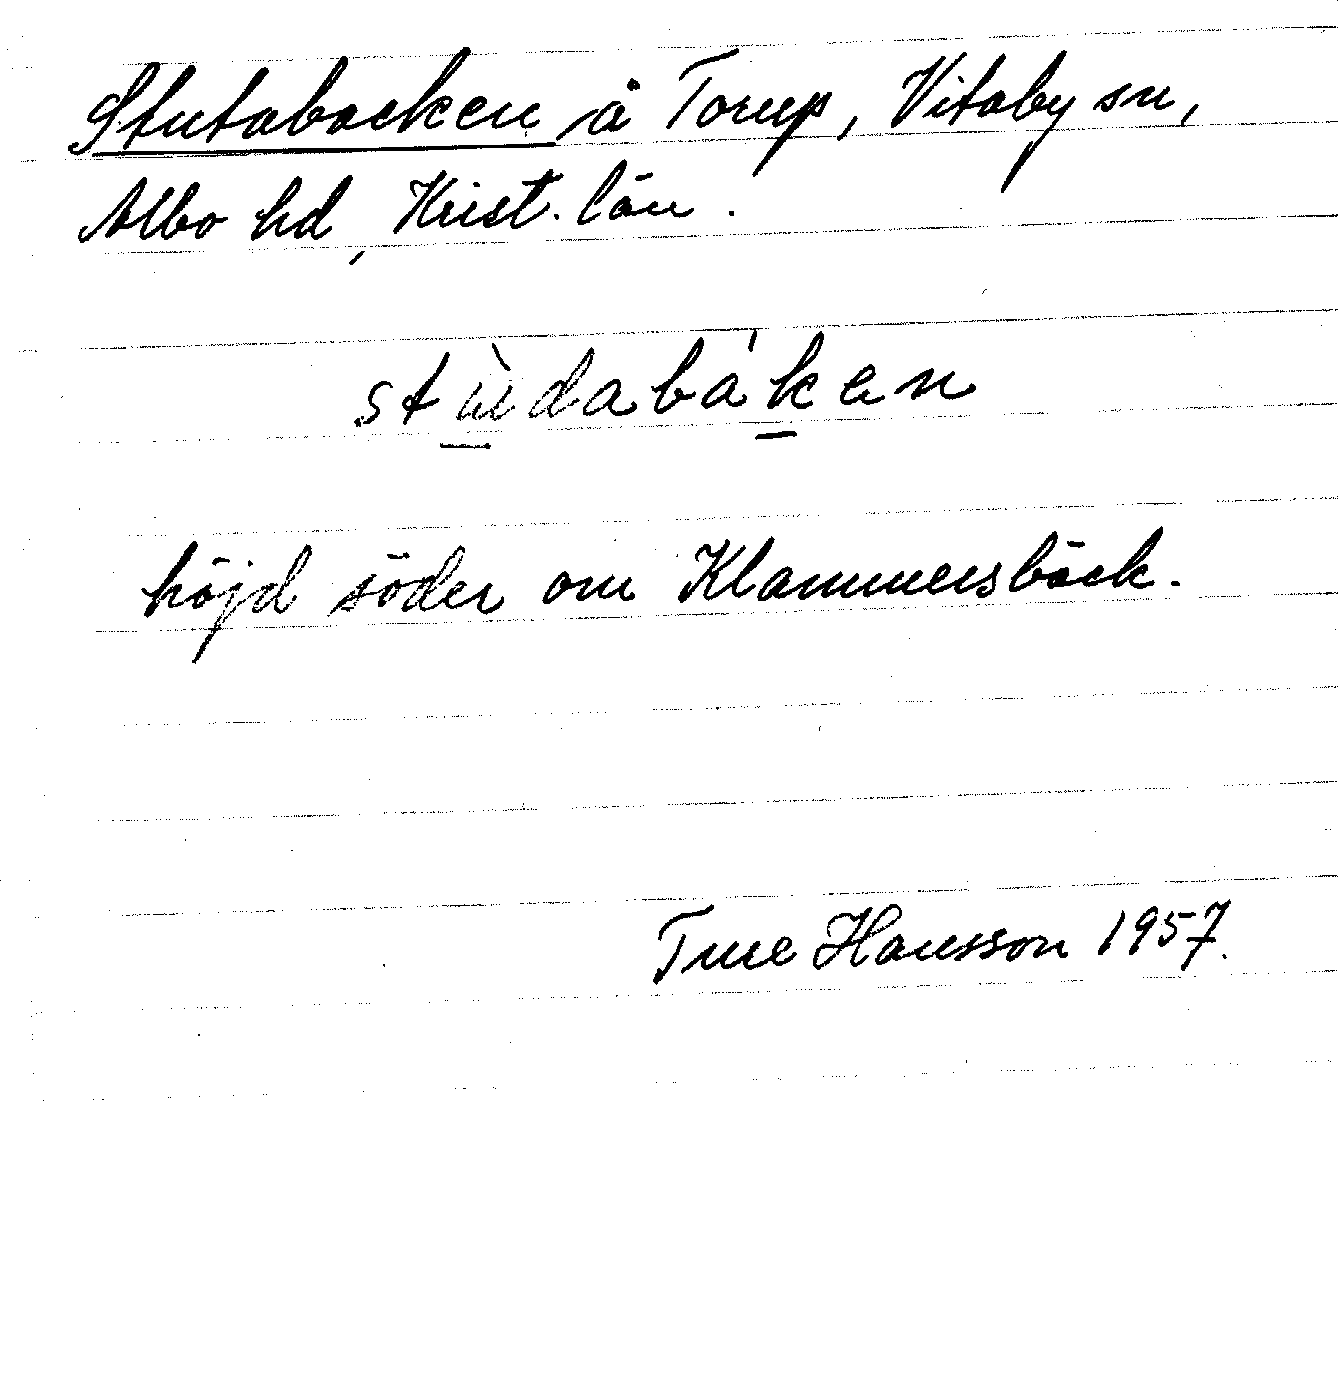 Stutabacken å Torup, Vitaby sn,
Albo hd, Krist. län.
stùdabáken
höjd söder om Klammersbäck.
Ture Hansson 1957.